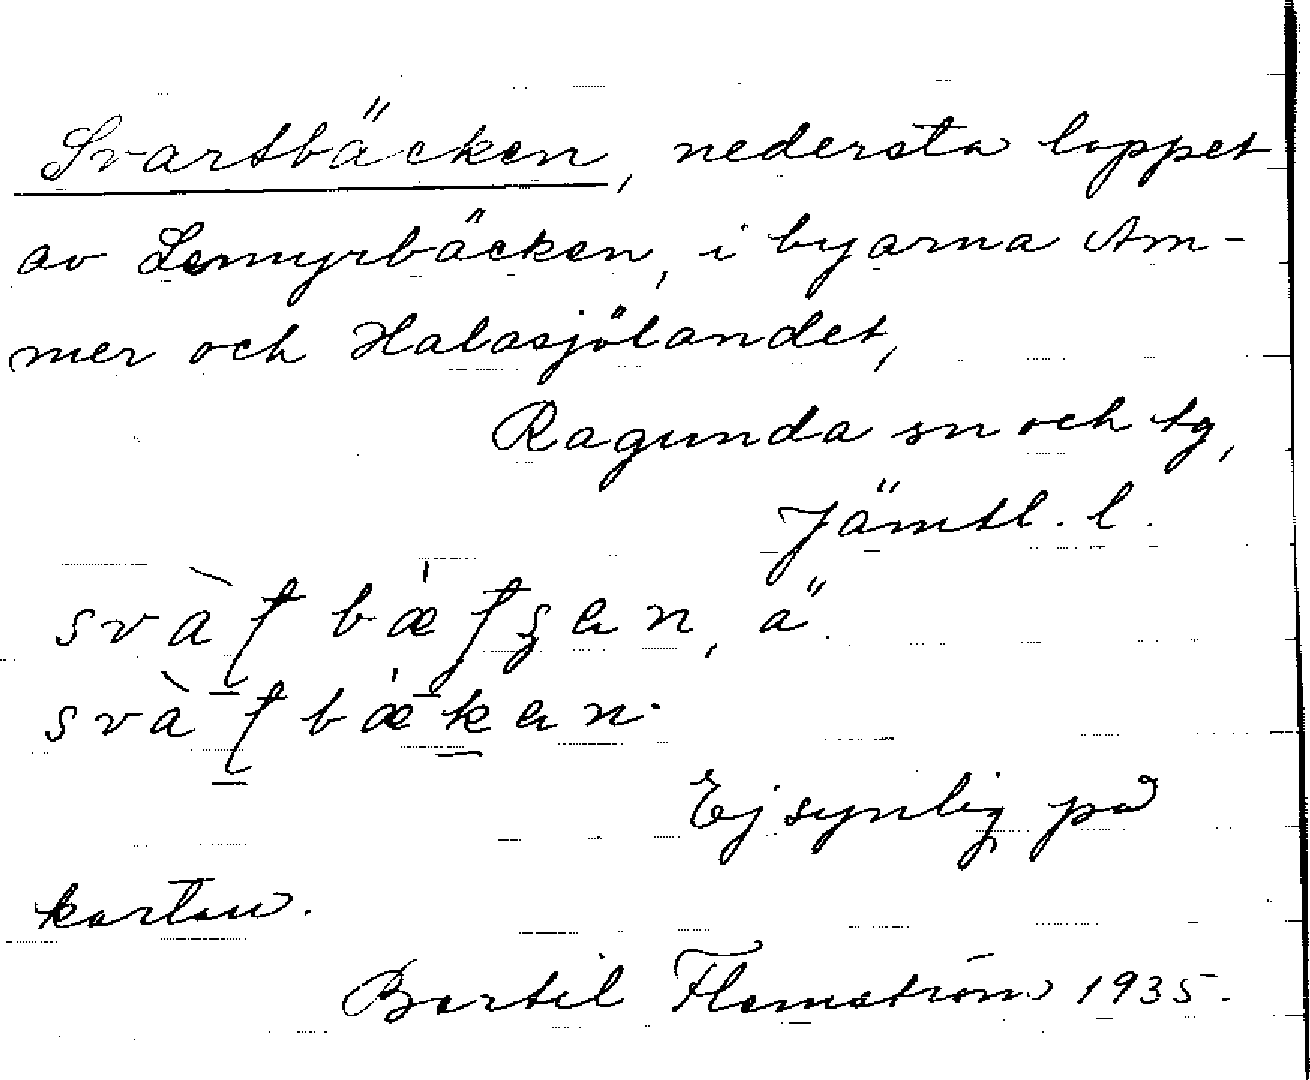 Svartbäcken, nedersta loppet
av Lomyrbäcken, i byarna Am-
mer och Halasjölandet,
Ragunda sn och tg,
Jämtl. l.
ä.
Ej synlig på
kartan.
Bertil Flemström 1935.